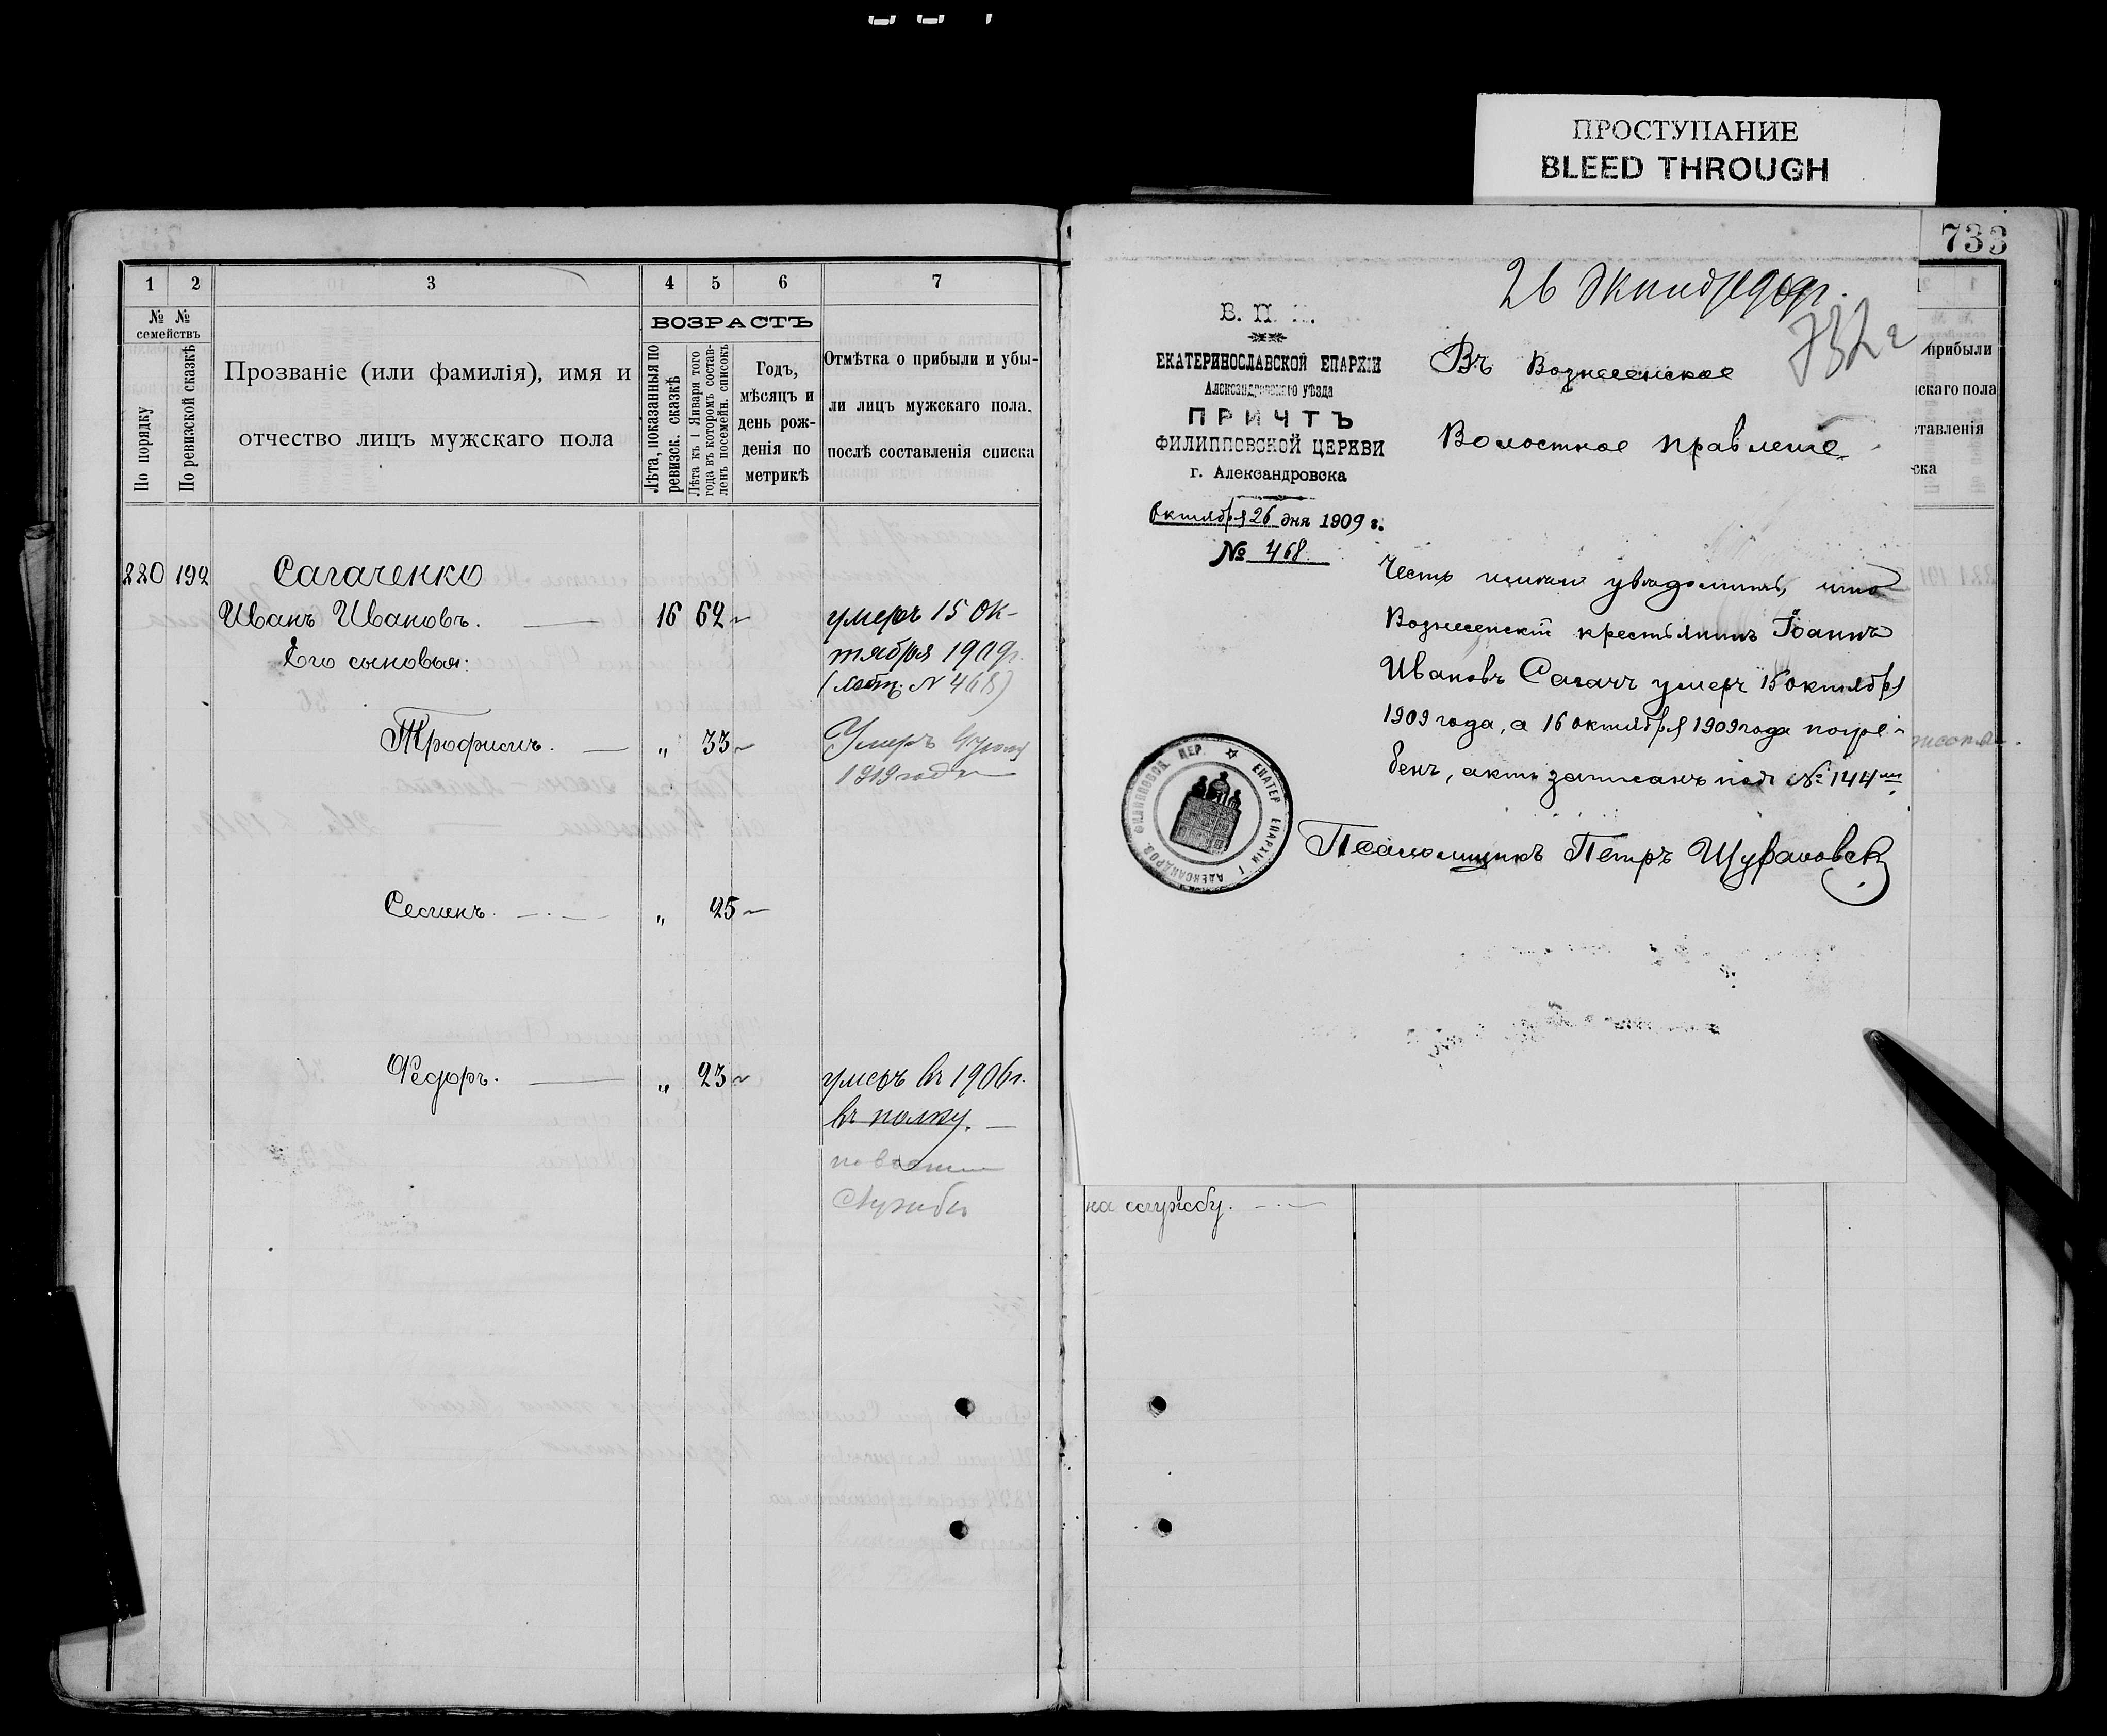 ПРОСТУПАНИЕ
BLEED THROUGH
1 2 3 4 5 6 7
№ № семействъ
По порядку
По ревизской сказкѣ
Прозваніе (или фамилія), имя и
отчество лицъ мужскаго пола
ВОЗРАСТЪ
Лѣта, показанныя по
ревизск. сказкѣ
Лѣта къ 1 Января того
года въ которомъ состав-
ленъ посемейн. списокъ
Годъ,
мѣсяцъ и
день рож-
денія по
метрикѣ
Отмѣтка о прибыли и убы-
ли лицъ мужскаго пола,
послѣ составленія списка
220 192 Сагаченко
Иванъ Ивановъ. 16 62 умеръ 15 Ок-
Его сыновья: тября 1909г.
№ 468)
Трофимъ. „ 33 Умеръ
1919 года
Семенъ. „ 25
Федоръ. „ 23 умеръ въ 1906г.
въ полку.
Службы
733
26 Октября 909г.
732
Е. П. 
ЕКАТЕРИНОСЛАВСКОЙ ЕПАРХІИ
Александровскаго уѣзда
ПРИЧТЪ
ФИЛИППОВСКОЙ ЦЕРКВИ
г. Александровска
Октября 26 дня 1909 г.
№ 468.
Въ Вознесенское
Волостное правленіе
Честь имѣю увѣдомить, что
Вознесенскій крестьянинъ Іоаннъ
Ивановъ Сагачъ умеръ 15 октября
1909 года, а 16 октября 1909 года погре-
бенъ, актъ записанъ подъ № 144мъ
Псаломщикъ Петръ
ФИЛИППОВСК. ЦЕР. ☆ ЕКАТЕР. ЕПАРХІИ Г. АЛЕКСАНДРОВ.
прибыли
скаго пола
ставленія
ска
на службу.